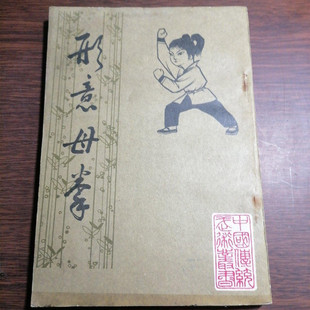 形意母拳
中國傳統
武術叢書